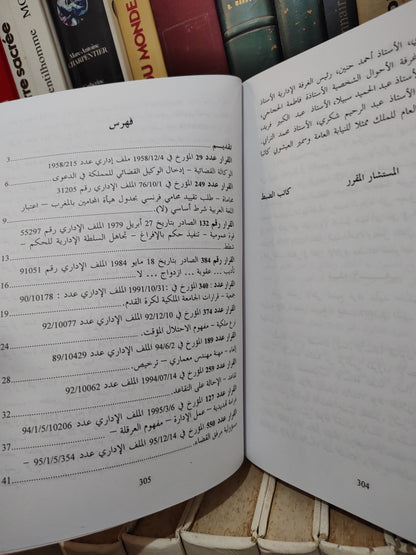 MO
sacrée
gentilhomme
Marc-Antoine
CHARPENTIER
DU MONDE
الأستاذ أحمد حنين، رئيس الغرفة الإدارية الأستاذ
غرفة الأحوال الشخصية الأستاذة فاطمة
عبد الحميد سبيلا الأستاذ عبد الكبير فريد،
الأستاذ عبد الرحيم شكري، الأستاذ محمد
العام للملك ممثلا للنيابة العامة وسمير العيشوي كاتبا
المستشار المقرر
كاتب الضبط
304
فهرس
تقديم
3
القرار عدد 29 المؤرخ في 1958/12/4 ملف إداري عدد 1958/215
الوكالة القضائية – إدخال الوكيل القضائي للمملكة في الدعوى
6
القرار عدد 249 المؤرخ في 76/10/1 الملف الإداري رقم 31205
محاماة – طلب تقييد محامي فرنسي بجدول هيأة المحامين بالمغرب – اعتبار
اللغة العربية شرط أساسي (لا).
9
القرار رقم 132 الصادر بتاريخ 27 أبريل 1979 الملف الإداري رقم 55297
قوة عمومية – تنفيذ حكم بالإفراغ – تجاهل السلطة الإدارية للحكم –
شطط
13
القرار رقم 384 الصادر بتاريخ 18 مايو 1984 الملف الإداري رقم 91051
تأديب – عقوبة – ازدواج ... لا
16
القرار عدد : 340 المؤرخ في :1991/10/31 الملف الإداري عدد : 90/10178
جمعية – قرارات الجامعة الملكية لكرة القدم.
19
القرار عدد 374 المؤرخ في 92/12/10 الملف الإداري عدد 92/10077
نزع ملكية – مفهوم الاحتلال المؤقت.
24
القرار عدد 189 المؤرخ في 94/6/2 الملف الإداري عدد 89/10429
إلغاء – مهنة مهندس معماري – ترخيص.
28
القرار عدد 259 المؤرخ في 1994/07/14 الملف الإداري عدد 92/10062
تقاعد – الإحالة على التقاعد.
32
القرار عدد 127 المؤرخ في 1995/3/6 الملف الإداري عدد 94/1/5/10206
غرامة تهديدية – عمل الإدارة – مفهوم العرقلة
37
القرار عدد 550 المؤرخ في 95/12/14 الملف الإداري عدد 95/1/5/354 –
مسؤولية مرفق القضاء.
41
305